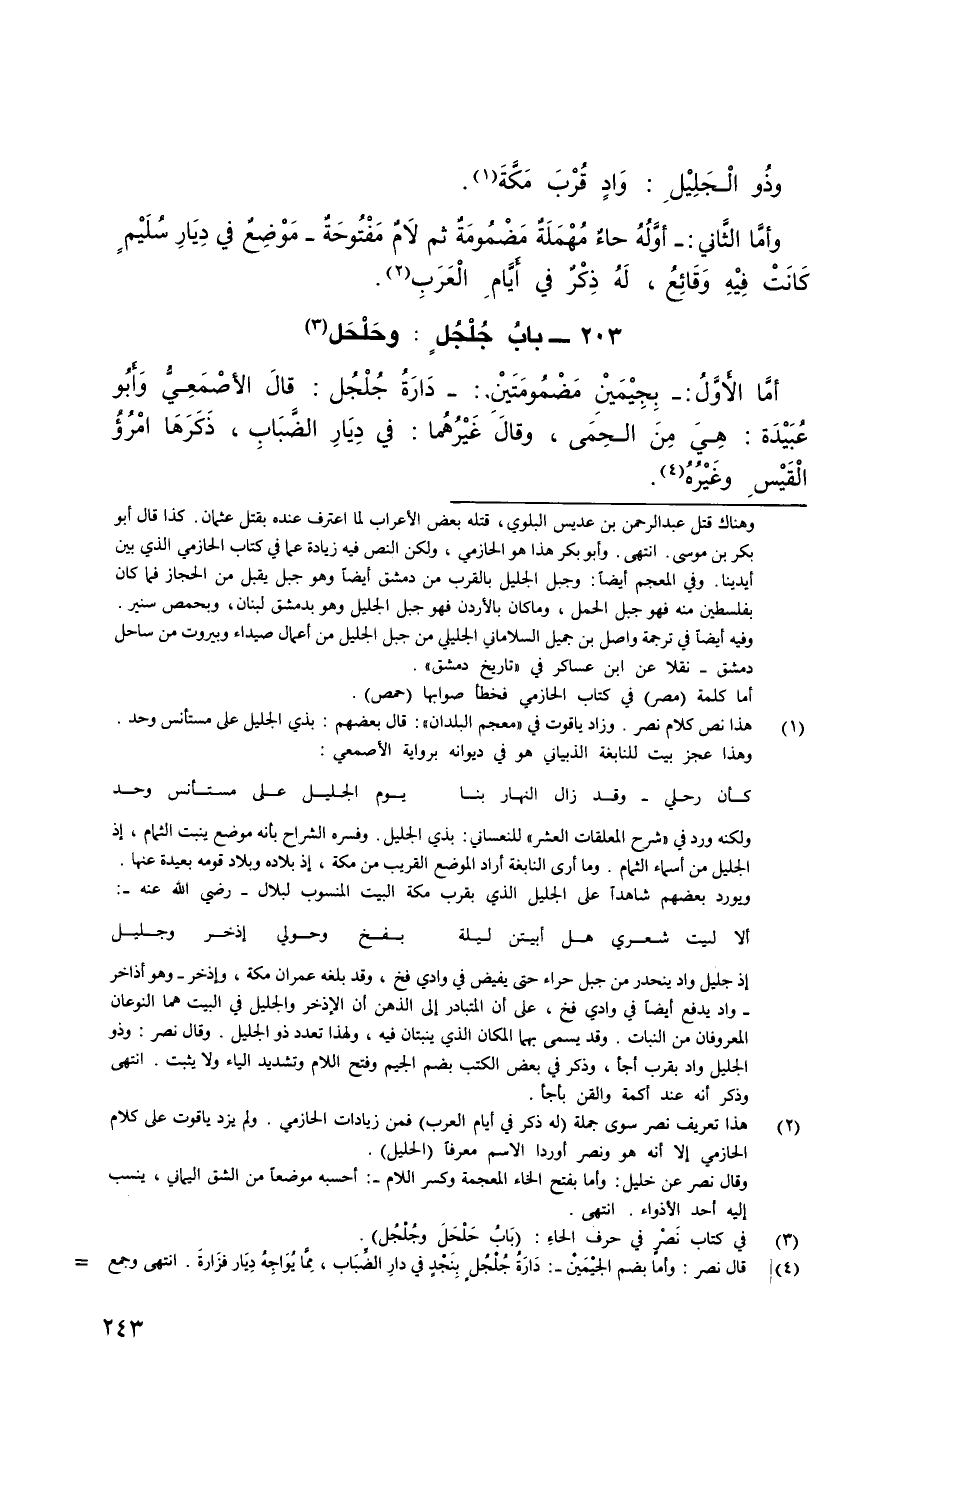 وذُو الْجَلِيْلِ : وَادٍ قُرْبَ مَكَّةَ(١).
وأمَّا الثَّاني :ـ أوَّلُهُ حاءٌ مُهْمَلَةٌ مَضْمُومَةٌ ثم لَامٌ مَفْتُوحَةٌ ـ مَوْضِعٌ في دِيَارِ سُلَيْمٍ
كَانَتْ فِيْهِ وَقَائِعُ ، لَهُ ذِكْرٌ في أَيَّامِ الْعَرَبِ(٢).
٢٠٣ ـ بابُ جُلْجُلٍ : وحَلْحَل(٣)
أمَّا الأَوَّلُ:ـ بِجِيْمَيْنْ مَضْمُومَتَيْنْ: ـ دَارَةُ جُلْجُل : قالَ الأصْمَعِيُّ وَأَبُو
عُبَيْدَة : هِيَ مِنَ الحِمَى ، وقالَ غَيْرُهُما : في دِيَارِ الضِّبَابِ ، ذَكَرَهَا امْرُؤُ
الْقَيْسِ وغَيْرُهُ(٤).
وهناك قتل عبدالرحمن بن عديس البلوي، قتله بعض الأعراب لما اعترف عنده بقتل عثمان. كذا قال أبو
بكر بن موسى. انتهى. وأبو بكر هذا هو الحازمي ، ولكن النص فيه زيادة عما في كتاب الحازمي الذي بين
أيدينا. وفي المعجم أيضاً: وجبل الجليل بالقرب من دمشق أيضاً وهو جبل يقبل من الحجاز فما كان
بفلسطين منه فهو جبل الحمل ، وماكان بالأردن فهو جبل الجليل وهو بدمشق لبنان، وبحمص سنير .
وفيه أيضاً في ترجمة واصل بن جميل السلاماني الجليلي من جبل الجليل من أعمال صيداء وبيروت من ساحل
دمشق ـ نقلا عن ابن عساكر في «تاريخ دمشق» .
أما كلمة (مصر) في كتاب الحازمي فخطأ صوابها (حمص) .
(١) هذا نص كلام نصر . وزاد ياقوت في «معجم البلدان»: قال بعضهم : بذي الجليل على مستأنس وحد .
وهذا عجز بيت للنابغة الذبياني هو في ديوانه برواية الأصمعي :
كـأن رحلي ـ وقـد زال النهار بنـا يـوم الجليـل عـلى مستـأنس وحـد
ولكنه ورد في «شرح المعلقات العشر» للنعساني: بذي الجليل. وفسره الشراح بأنه موضع ينبت الثمام ، إذ
الجليل من أسماء الثمام . وما أرى النابغة أراد الموضع القريب من مكة ، إذ بلاده وبلاد قومه بعيدة عنها .
ويورد بعضهم شاهداً على الجليل الذي بقرب مكة البيت المنسوب لبلال ـ رضي الله عنه ـ:
ألا ليت شـعـري هـل أبيتـن ليـلة بـفـخ وحـولي إذخـر وجـليـل
إذ جليل واد ينحدر من جبل حراء حتى يفيض في وادي فخ ، وقد بلغه عمران مكة ، وإذخر ـ وهو أذاخر
ـ واد يدفع أيضاً في وادي فخ ، على أن المتبادر إلى الذهن أن الإذخر والجليل في البيت هما النوعان
المعروفان من النبات . وقد يسمى بهما المكان الذي ينبتان فيه ، ولهذا تعدد ذو الجليل . وقال نصر : وذو
الجليل واد بقرب أجأ ، وذكر في بعض الكتب بضم الجيم وفتح اللام وتشديد الياء ولا يثبت . انتهى
وذكر أنه عند أكمة والقن بأجأ .
(٢) هذا تعريف نصر سوى جملة (له ذكر في أيام العرب) فمن زيادات الحازمي . ولم يزد ياقوت على كلام
الحازمي إلا أنه هو ونصر أوردا الاسم معرفاً (الحليل) .
وقال نصر عن خليل: وأما بفتح الخاء المعجمة وكسر اللام ـ: أحسبه موضعاً من الشق اليماني ، ينسب
إليه أحد الأذواء . انتهى .
(٣) في كتاب نَصْرٍ في حرف الحاء : (بَابُ حَلْحَلَ وجُلْجُل) .
(٤) قال نصر : وأما بضم الجِيْمَيْنْ ـ: دَارَةُ جُلْجُلٍ بِنَجْدٍ في دارِ الضِّبَاب ، مِمَّا يُوَاجِهُ دِيَار فَزَارةَ . انتهى وجمع =
٢٤٣